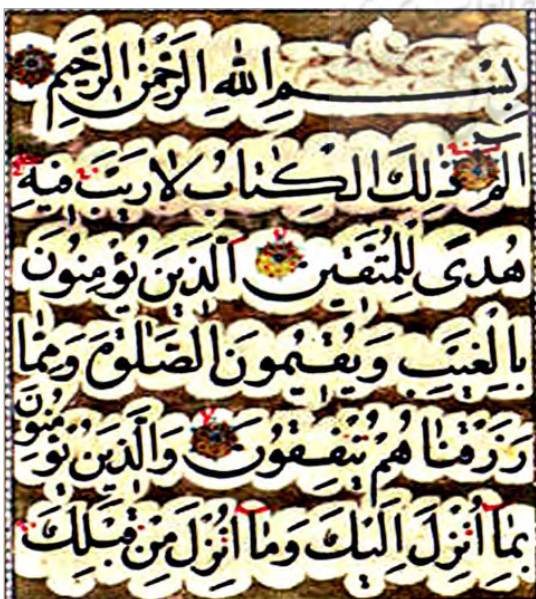 بِسْمِ اللهِ الرَّحْمٰنِ الرَّحِيمِ
الٓمٓ ذٰلِكَ الْكِتَابُ لَا رَيْبَ فِيهِ
هُدًى لِلْمُتَّقِينَ اَلَّذِينَ يُؤْمِنُونَ
بِالْغَيْبِ وَيُقِيمُونَ الصَّلٰوةَ وَمِمَّا
رَزَقْنَاهُمْ يُنْفِقُونَ وَالَّذِينَ يُؤْمِنُونَ
بِمَٓا اُنْزِلَ اِلَيْكَ وَمَٓا اُنْزِلَ مِنْ قَبْلِكَ